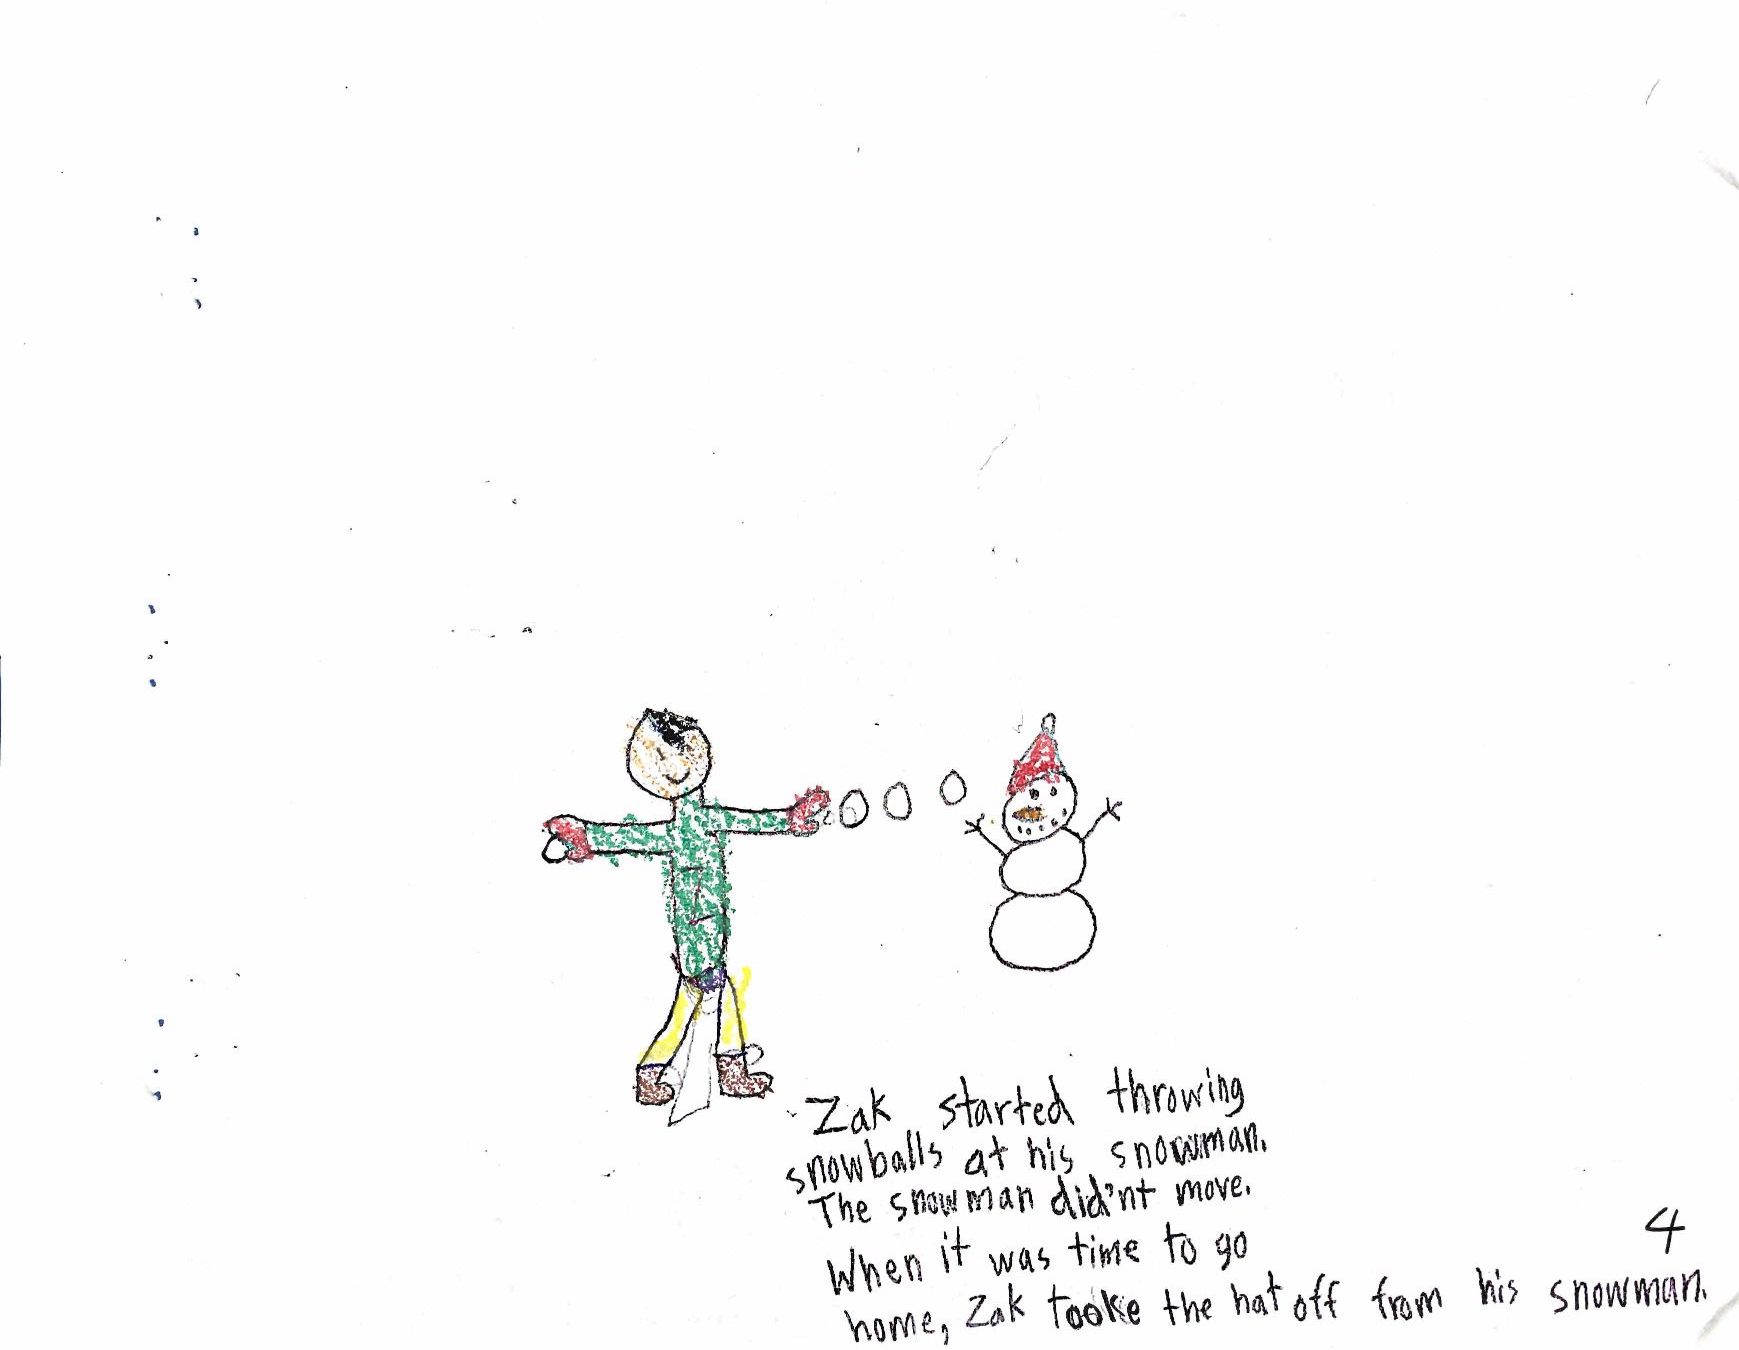 Zak started throwing
snowballs at his snowman.
The snowman did'nt move.
When it was time to go
home, Zak tooke the hat off from his snowman.
4